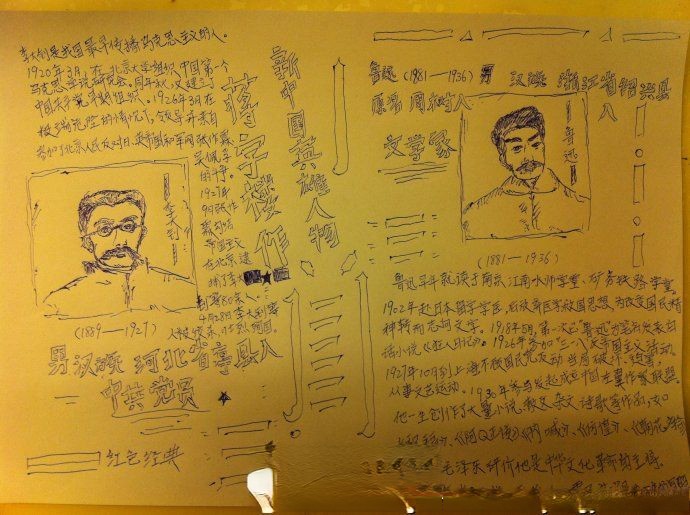 李大钊是我国最早传播马克思主义的人。
1920年3月,在北京大学组织中国第一个
马克思学说研究会。同年秋,又建立了
中国共产党早期组织。1926年3月在
极端危险的情况下,领导并亲自
参加了北京人民反对日、英帝国和军阀张作霖、
吴佩孚
的斗争。
1927年
4月,张作
霖勾结
帝国主义
在北京逮
捕了李大
李大钊
(1889—1927)
4月28日李大钊等
人被绞杀,
男 汉族 河北省
中共党员
红色经典
新中国英雄人物
蒋字楼作
鲁迅(1981—1936)男 汉族 浙江省绍兴县
人
原名 周树人
文学家
鲁迅
(1881—1936)
鲁迅早年就读于南京江南水师学堂、矿务铁路学堂
1902年赴日本留学学医,后放弃医学救国思想,为改变国民精
神转而志向文学。1918年5月,第一次以“鲁迅”为笔名发表白
话小说《狂人日记》。1926年参加“三一八”反帝国主义活动。
1927年10月到上海
从事文艺运动。1930年参与发起成立中国左翼作家联盟。
他一生创作了大量小说、散文、杂文、诗歌等作品,如
《阿Q正传》《呐喊》、《彷徨》、
毛泽东评价他是中华文化革命的主将。